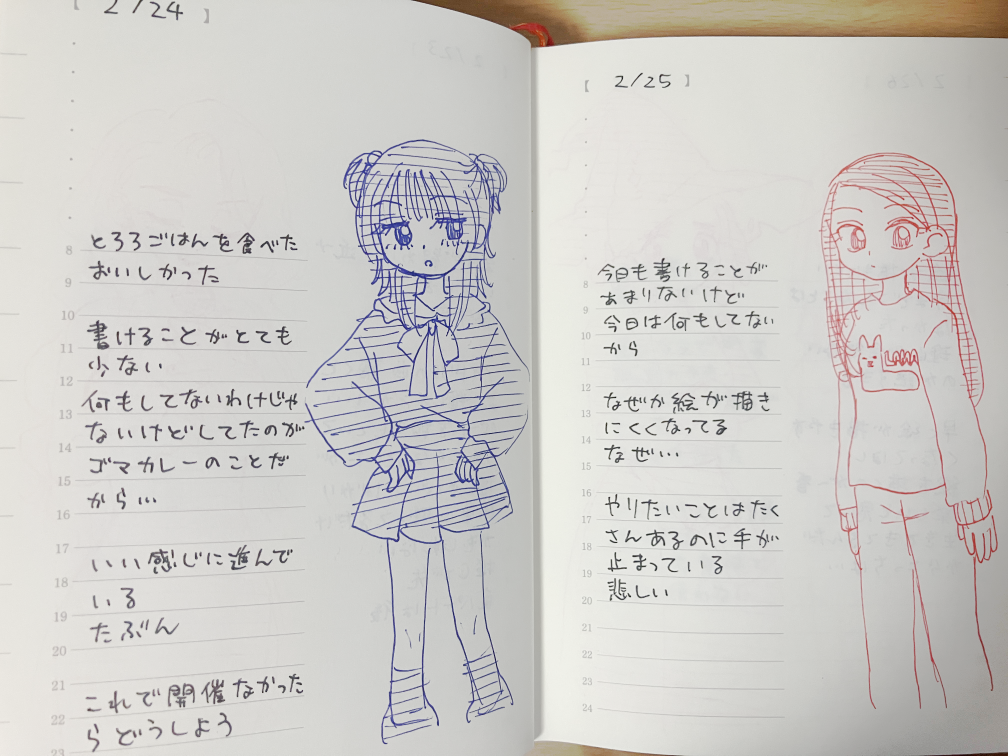 【 2/24 】
8
9
10
11
12
13
14
15
16
17
18
19
20
21
22
23
とろろごはんを食べた
おいしかった
書けることがとても
少ない
何もしてないわけじゃ
ないけどしてたのが
ゴマカレーのことだ
から…
いい感じに進んで
いる
たぶん
これで開催なかった
らどうしよう
【 2/25 】
8
9
10
11
12
13
14
15
16
17
18
19
20
21
22
23
24
今日も書けることが
あまりないけど
今日は何もしてない
から
なぜか絵が描き
にくくなってる
なぜ…
やりたいことはたく
さんあるのに手が
止まっている
悲しい
LAMA